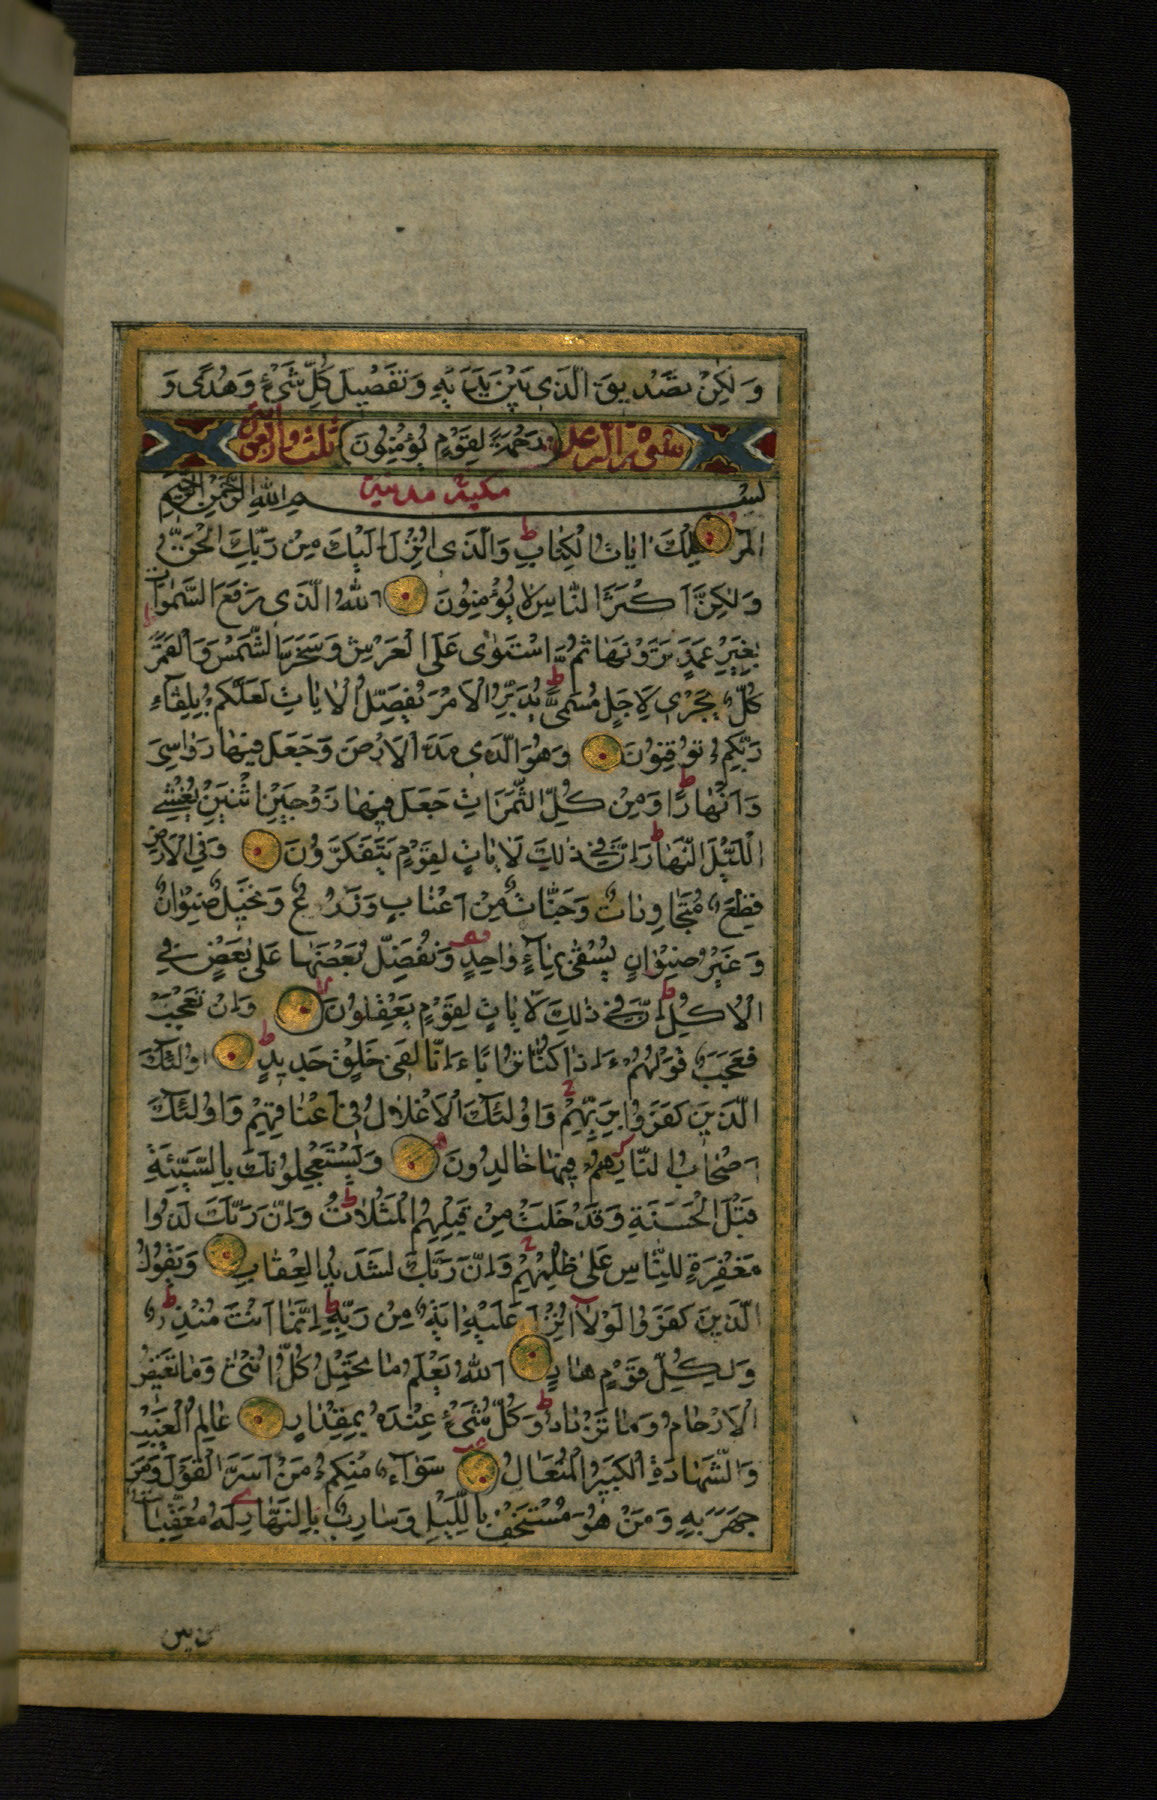 وَلٰكِنْ تَصْدِيقَ الَّذِي بَيْنَ يَدَيْهِ وَتَفْصِيلَ كُلِّ شَيْءٍ وَهُدًى وَ
سورة الرعد رَحْمَةً لِقَوْمٍ يُؤْمِنُونَ ثلث واربعون
بِسْمِ اللّٰهِ الرَّحْمٰنِ الرَّحِيمِ مكية مدنية
الٓمٓرٰ تِلْكَ اٰيَاتُ الْكِتَابِ وَالَّذِي اُنْزِلَ اِلَيْكَ مِنْ رَبِّكَ الْحَقُّ
وَلٰكِنَّ اَكْثَرَ النَّاسِ لَا يُؤْمِنُونَ اَللّٰهُ الَّذِي رَفَعَ السَّمٰوَاتِ
بِغَيْرِ عَمَدٍ تَرَوْنَهَا ثُمَّ اسْتَوٰى عَلَى الْعَرْشِ وَسَخَّرَ الشَّمْسَ وَالْقَمَرَ
كُلٌّ يَجْرِي لِاَجَلٍ مُسَمًّى يُدَبِّرُ الْاَمْرَ يُفَصِّلُ الْاٰيَاتِ لَعَلَّكُمْ بِلِقَآءِ
رَبِّكُمْ تُوقِنُونَ وَهُوَ الَّذِي مَدَّ الْاَرْضَ وَجَعَلَ فِيهَا رَوَاسِيَ
وَاَنْهَارًا وَمِنْ كُلِّ الثَّمَرَاتِ جَعَلَ فِيهَا زَوْجَيْنِ اثْنَيْنِ يُغْشِي
اللَّيْلَ النَّهَارَ اِنَّ فِي ذٰلِكَ لَاٰيَاتٍ لِقَوْمٍ يَتَفَكَّرُونَ وَفِي الْاَرْضِ
قِطَعٌ مُتَجَاوِرَاتٌ وَجَنَّاتٌ مِنْ اَعْنَابٍ وَزَرْعٌ وَنَخِيلٌ صِنْوَانٌ
وَغَيْرُ صِنْوَانٍ يُسْقٰى بِمَآءٍ وَاحِدٍ وَنُفَضِّلُ بَعْضَهَا عَلٰى بَعْضٍ فِي
الْاُكُلِ اِنَّ فِي ذٰلِكَ لَاٰيَاتٍ لِقَوْمٍ يَعْقِلُونَ وَاِنْ تَعْجَبْ
فَعَجَبٌ قَوْلُهُمْ ءَاِذَا كُنَّا تُرَابًا ءَاِنَّا لَفِي خَلْقٍ جَدِيدٍ اُولٰئِكَ
الَّذِينَ كَفَرُوا بِرَبِّهِمْ وَاُولٰئِكَ الْاَغْلَالُ فِي اَعْنَاقِهِمْ وَاُولٰئِكَ
اَصْحَابُ النَّارِ هُمْ فِيهَا خَالِدُونَ وَيَسْتَعْجِلُونَكَ بِالسَّيِّئَةِ
قَبْلَ الْحَسَنَةِ وَقَدْ خَلَتْ مِنْ قَبْلِهِمُ الْمَثُلَاتُ وَاِنَّ رَبَّكَ لَذُوا
مَغْفِرَةٍ لِلنَّاسِ عَلٰى ظُلْمِهِمْ وَاِنَّ رَبَّكَ لَشَدِيدُ الْعِقَابِ وَيَقُولُ
الَّذِينَ كَفَرُوا لَوْلَا اُنْزِلَ عَلَيْهِ اٰيَةٌ مِنْ رَبِّهِ اِنَّمَا اَنْتَ مُنْذِرٌ
وَلِكُلِّ قَوْمٍ هَادٍ اَللّٰهُ يَعْلَمُ مَا تَحْمِلُ كُلُّ اُنْثٰى وَمَا تَغِيضُ
الْاَرْحَامُ وَمَا تَزْدَادُ وَكُلُّ شَيْءٍ عِنْدَهُ بِمِقْدَارٍ عَالِمُ الْغَيْبِ
وَالشَّهَادَةِ الْكَبِيرُ الْمُتَعَالُ سَوَآءٌ مِنْكُمْ مَنْ اَسَرَّ الْقَوْلَ وَمَنْ
جَهَرَ بِهِ وَمَنْ هُوَ مُسْتَخْفٍ بِاللَّيْلِ وَسَارِبٌ بِالنَّهَارِ لَهُ مُعَقِّبَاتٌ
من بين